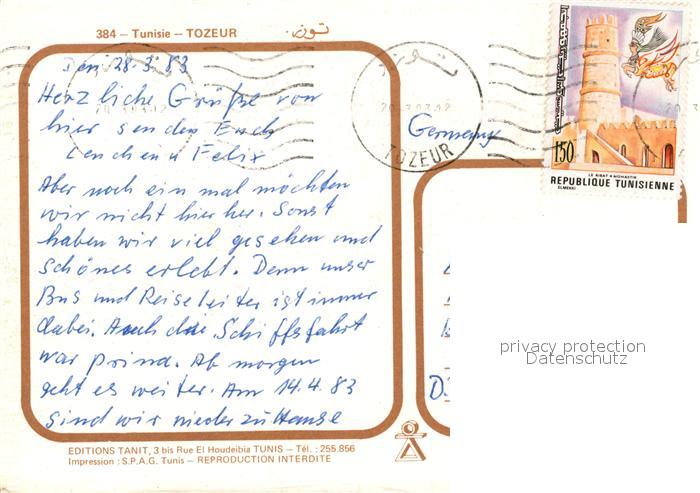 384 — Tunisie — TOZEUR توزر
Den 28.3.83
Herzliche Grüße von
hier senden Euch
Lenchen u Felix
Aber noch ein mal möchten
wir nicht hierher. Sonst
haben wir viel gesehen und
schönes erlebt. Denn unser
Bus und Reiseleiter ist immer
dabei. Auch die Schiffsfahrt
war prima. Ab morgen
geht es weiter. Am 14.4.83
sind wir wieder zu Hause
Germany
TOZEUR
150
LE RIBAT • MONASTIR
REPUBLIQUE TUNISIENNE
ELMEKKI
privacy protection
Datenschutz
D.
EDITIONS TANIT, 3 bis Rue El Houdeibia TUNIS — Tél. : 255.856
Impression : S.P.A.G. Tunis — REPRODUCTION INTERDITE